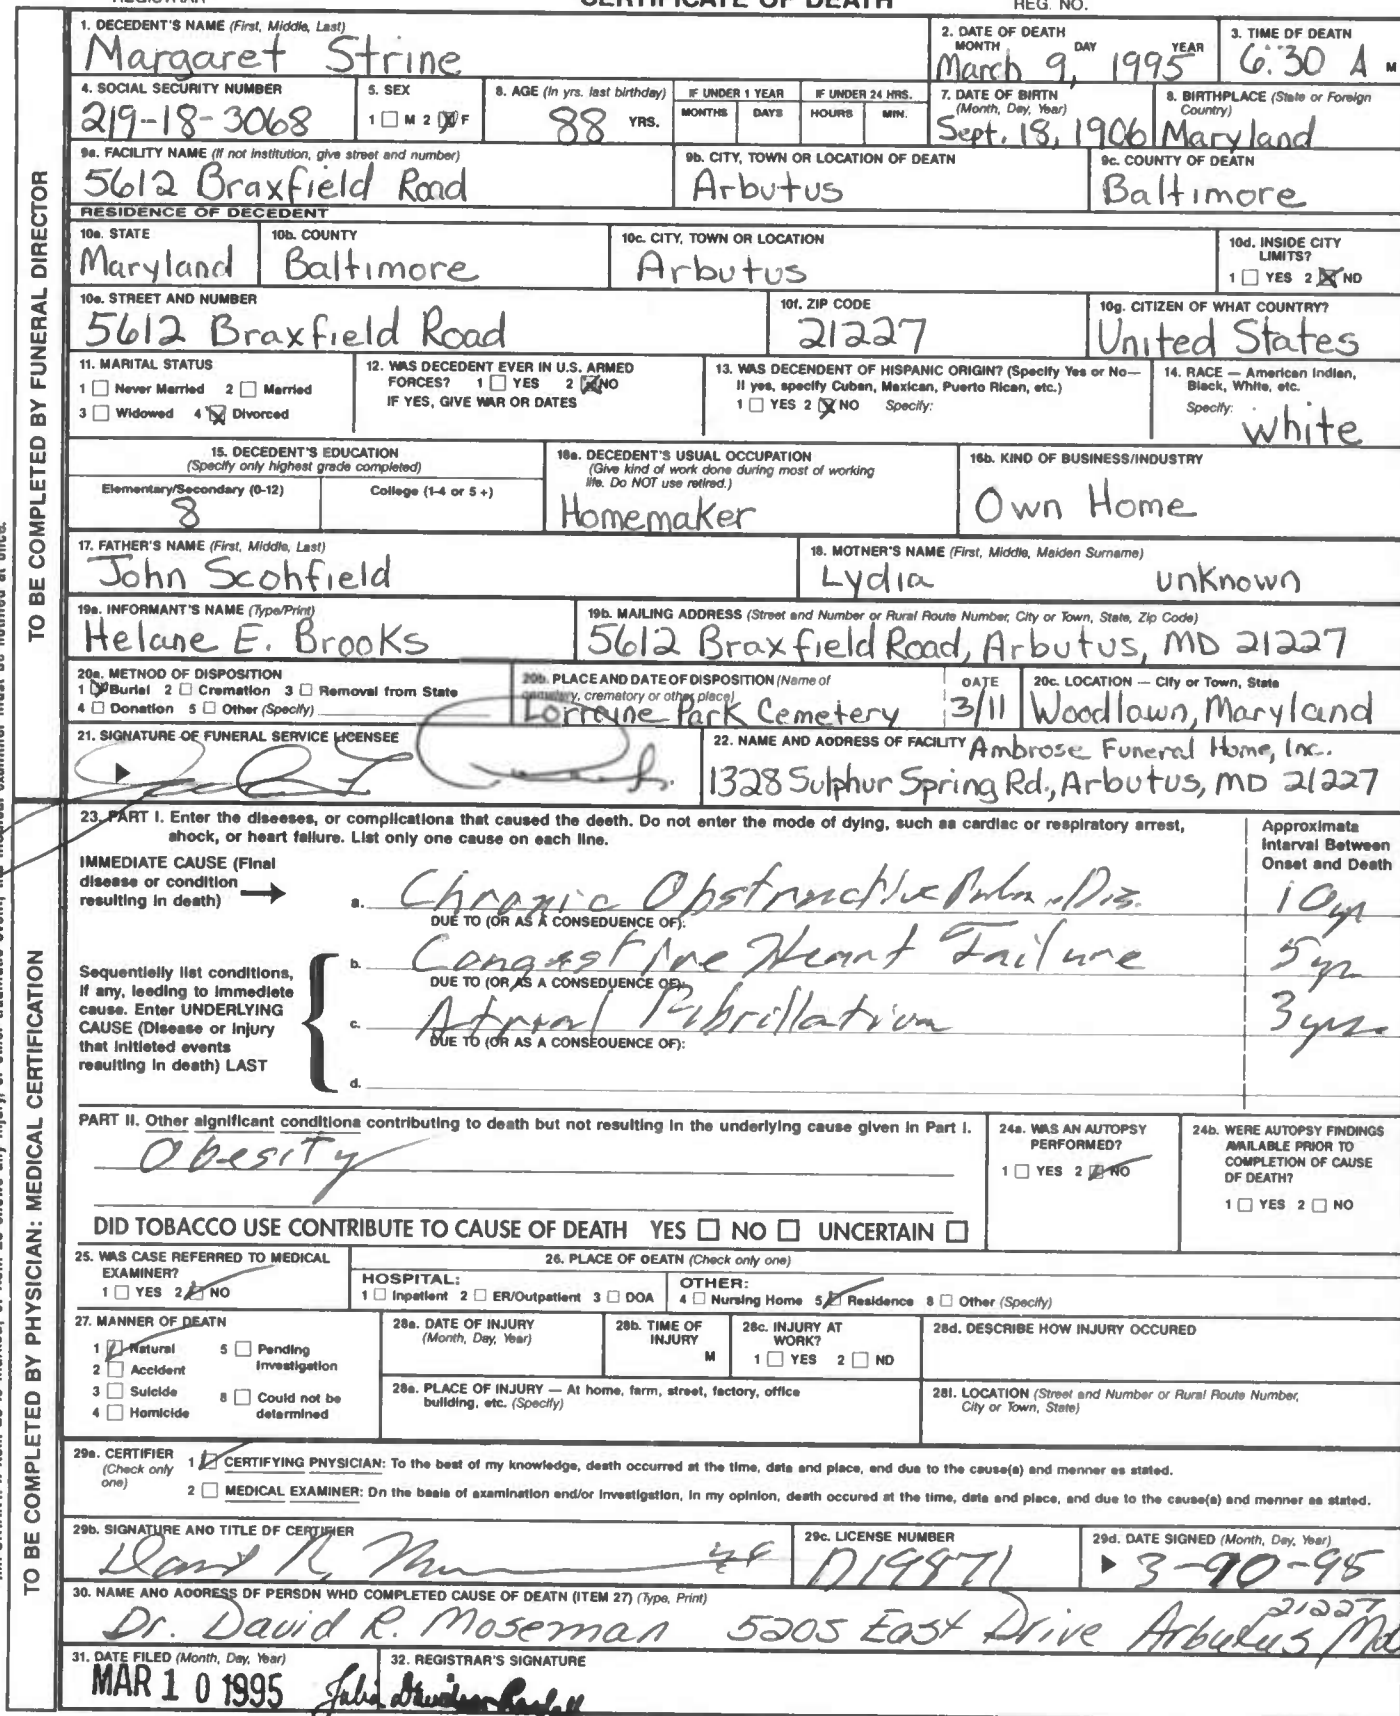 CERTIFICATE OF DEATH
REG. NO.
1. DECEDENT'S NAME (First, Middle, Last)
Margaret Strine
2. DATE OF DEATH
MONTH DAY YEAR
March 9, 1995
3. TIME OF DEATH
6:30 A M
4. SOCIAL SECURITY NUMBER
219-18-3068
5. SEX
1 ☐ M 2 ☒ F
6. AGE (In yrs. last birthday)
88 YRS.
IF UNDER 1 YEAR
MONTHS DAYS
IF UNDER 24 HRS.
HOURS MIN.
7. DATE OF BIRTH
(Month, Day, Year)
Sept. 18, 1906
8. BIRTHPLACE (State or Foreign
Country)
Maryland
9a. FACILITY NAME (If not institution, give street and number)
5612 Braxfield Road
9b. CITY, TOWN OR LOCATION OF DEATH
Arbutus
9c. COUNTY OF DEATH
Baltimore
RESIDENCE OF DECEDENT
10a. STATE
Maryland
10b. COUNTY
Baltimore
10c. CITY, TOWN OR LOCATION
Arbutus
10d. INSIDE CITY
LIMITS?
1 ☐ YES 2 ☒ NO
10e. STREET AND NUMBER
5612 Braxfield Road
10f. ZIP CODE
21227
10g. CITIZEN OF WHAT COUNTRY?
United States
11. MARITAL STATUS
1 ☐ Never Married 2 ☐ Married
3 ☐ Widowed 4 ☒ Divorced
12. WAS DECEDENT EVER IN U.S. ARMED
FORCES? 1 ☐ YES 2 ☒ NO
IF YES, GIVE WAR OR DATES
13. WAS DECENDENT OF HISPANIC ORIGIN? (Specify Yes or No—
If yes, specify Cuban, Mexican, Puerto Rican, etc.)
1 ☐ YES 2 ☒ NO Specify:
14. RACE — American Indian,
Black, White, etc.
Specify:
white
15. DECEDENT'S EDUCATION
(Specify only highest grade completed)
Elementary/Secondary (0-12)
8
College (1-4 or 5 +)
16a. DECEDENT'S USUAL OCCUPATION
(Give kind of work done during most of working
life. Do NOT use retired.)
Homemaker
16b. KIND OF BUSINESS/INDUSTRY
Own Home
17. FATHER'S NAME (First, Middle, Last)
John Scohfield
18. MOTHER'S NAME (First, Middle, Maiden Surname)
Lydia unknown
19a. INFORMANT'S NAME (Type/Print)
Helane E. Brooks
19b. MAILING ADDRESS (Street and Number or Rural Route Number, City or Town, State, Zip Code)
5612 Braxfield Road, Arbutus, MD 21227
20a. METHOD OF DISPOSITION
1 ☒ Burial 2 ☐ Cremation 3 ☐ Removal from State
4 ☐ Donation 5 ☐ Other (Specify)
20b. PLACE AND DATE OF DISPOSITION (Name of
cemetery, crematory or other place)
Lorraine Park Cemetery
DATE
3/11
20c. LOCATION — City or Town, State
Woodlawn, Maryland
21. SIGNATURE OF FUNERAL SERVICE LICENSEE
22. NAME AND ADDRESS OF FACILITY Ambrose Funeral Home, Inc.
1328 Sulphur Spring Rd., Arbutus, MD 21227
23. PART I. Enter the diseases, or complications that caused the death. Do not enter the mode of dying, such as cardiac or respiratory arrest,
shock, or heart failure. List only one cause on each line.
Approximate
Interval Between
Onset and Death
IMMEDIATE CAUSE (Final
disease or condition
resulting in death)
a. Chronic Obstructive Pulm. Dis. 10 yr
DUE TO (OR AS A CONSEQUENCE OF):
b. Congestive Heart Failure 5 yr
DUE TO (OR AS A CONSEQUENCE OF):
Sequentially list conditions,
if any, leading to immediate
cause. Enter UNDERLYING
CAUSE (Disease or injury
that initiated events
resulting in death) LAST
c. Atrial Fibrillation 3 yrs.
DUE TO (OR AS A CONSEQUENCE OF):
d.
PART II. Other significant conditions contributing to death but not resulting in the underlying cause given in Part I.
Obesity
24a. WAS AN AUTOPSY
PERFORMED?
1 ☐ YES 2 ☒ NO
24b. WERE AUTOPSY FINDINGS
AVAILABLE PRIOR TO
COMPLETION OF CAUSE
OF DEATH?
1 ☐ YES 2 ☐ NO
DID TOBACCO USE CONTRIBUTE TO CAUSE OF DEATH YES ☐ NO ☐ UNCERTAIN ☐
25. WAS CASE REFERRED TO MEDICAL
EXAMINER?
1 ☐ YES 2 ☒ NO
26. PLACE OF DEATH (Check only one)
HOSPITAL:
1 ☐ Inpatient 2 ☐ ER/Outpatient 3 ☐ DOA
OTHER:
4 ☐ Nursing Home 5 ☒ Residence 6 ☐ Other (Specify)
27. MANNER OF DEATH
1 ☒ Natural 5 ☐ Pending
Investigation
2 ☐ Accident
3 ☐ Suicide 6 ☐ Could not be
determined
4 ☐ Homicide
28a. DATE OF INJURY
(Month, Day, Year)
28b. TIME OF
INJURY
M
28c. INJURY AT
WORK?
1 ☐ YES 2 ☐ NO
28d. DESCRIBE HOW INJURY OCCURED
28e. PLACE OF INJURY — At home, farm, street, factory, office
building, etc. (Specify)
28f. LOCATION (Street and Number or Rural Route Number,
City or Town, State)
29a. CERTIFIER
(Check only
one)
1 ☒ CERTIFYING PHYSICIAN: To the best of my knowledge, death occurred at the time, date and place, and due to the cause(s) and manner as stated.
2 ☐ MEDICAL EXAMINER: On the basis of examination and/or investigation, in my opinion, death occured at the time, date and place, and due to the cause(s) and manner as stated.
29b. SIGNATURE AND TITLE OF CERTIFIER
29c. LICENSE NUMBER
D19871
29d. DATE SIGNED (Month, Day, Year)
30. NAME AND ADDRESS OF PERSON WHO COMPLETED CAUSE OF DEATH (ITEM 27) (Type, Print)
Dr. David R. Moseman 5205 East Drive Arbutus, Md
21227
31. DATE FILED (Month, Day, Year)
MAR 10 1995
32. REGISTRAR'S SIGNATURE
TO BE COMPLETED BY FUNERAL DIRECTOR
TO BE COMPLETED BY PHYSICIAN: MEDICAL CERTIFICATION